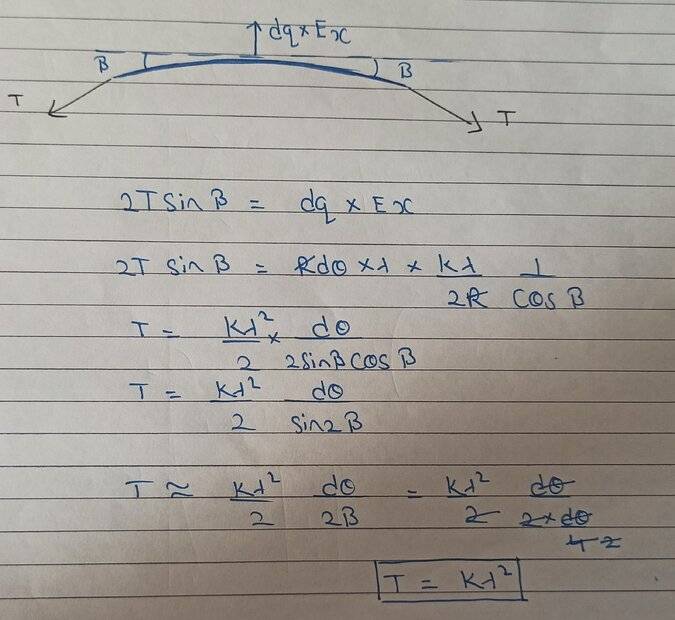 dq × Ex
B B
T T
2T sin B = dq × Ex
2T sin B = Rdθ × λ × Kλ/2R 1/cos B
T = Kλ²/2 × dθ/2sinB cos B
T = Kλ²/2 dθ/sin2B
T ≈ Kλ²/2 dθ/2B = Kλ²/2 dθ/2×dθ
4 2
T = Kλ²